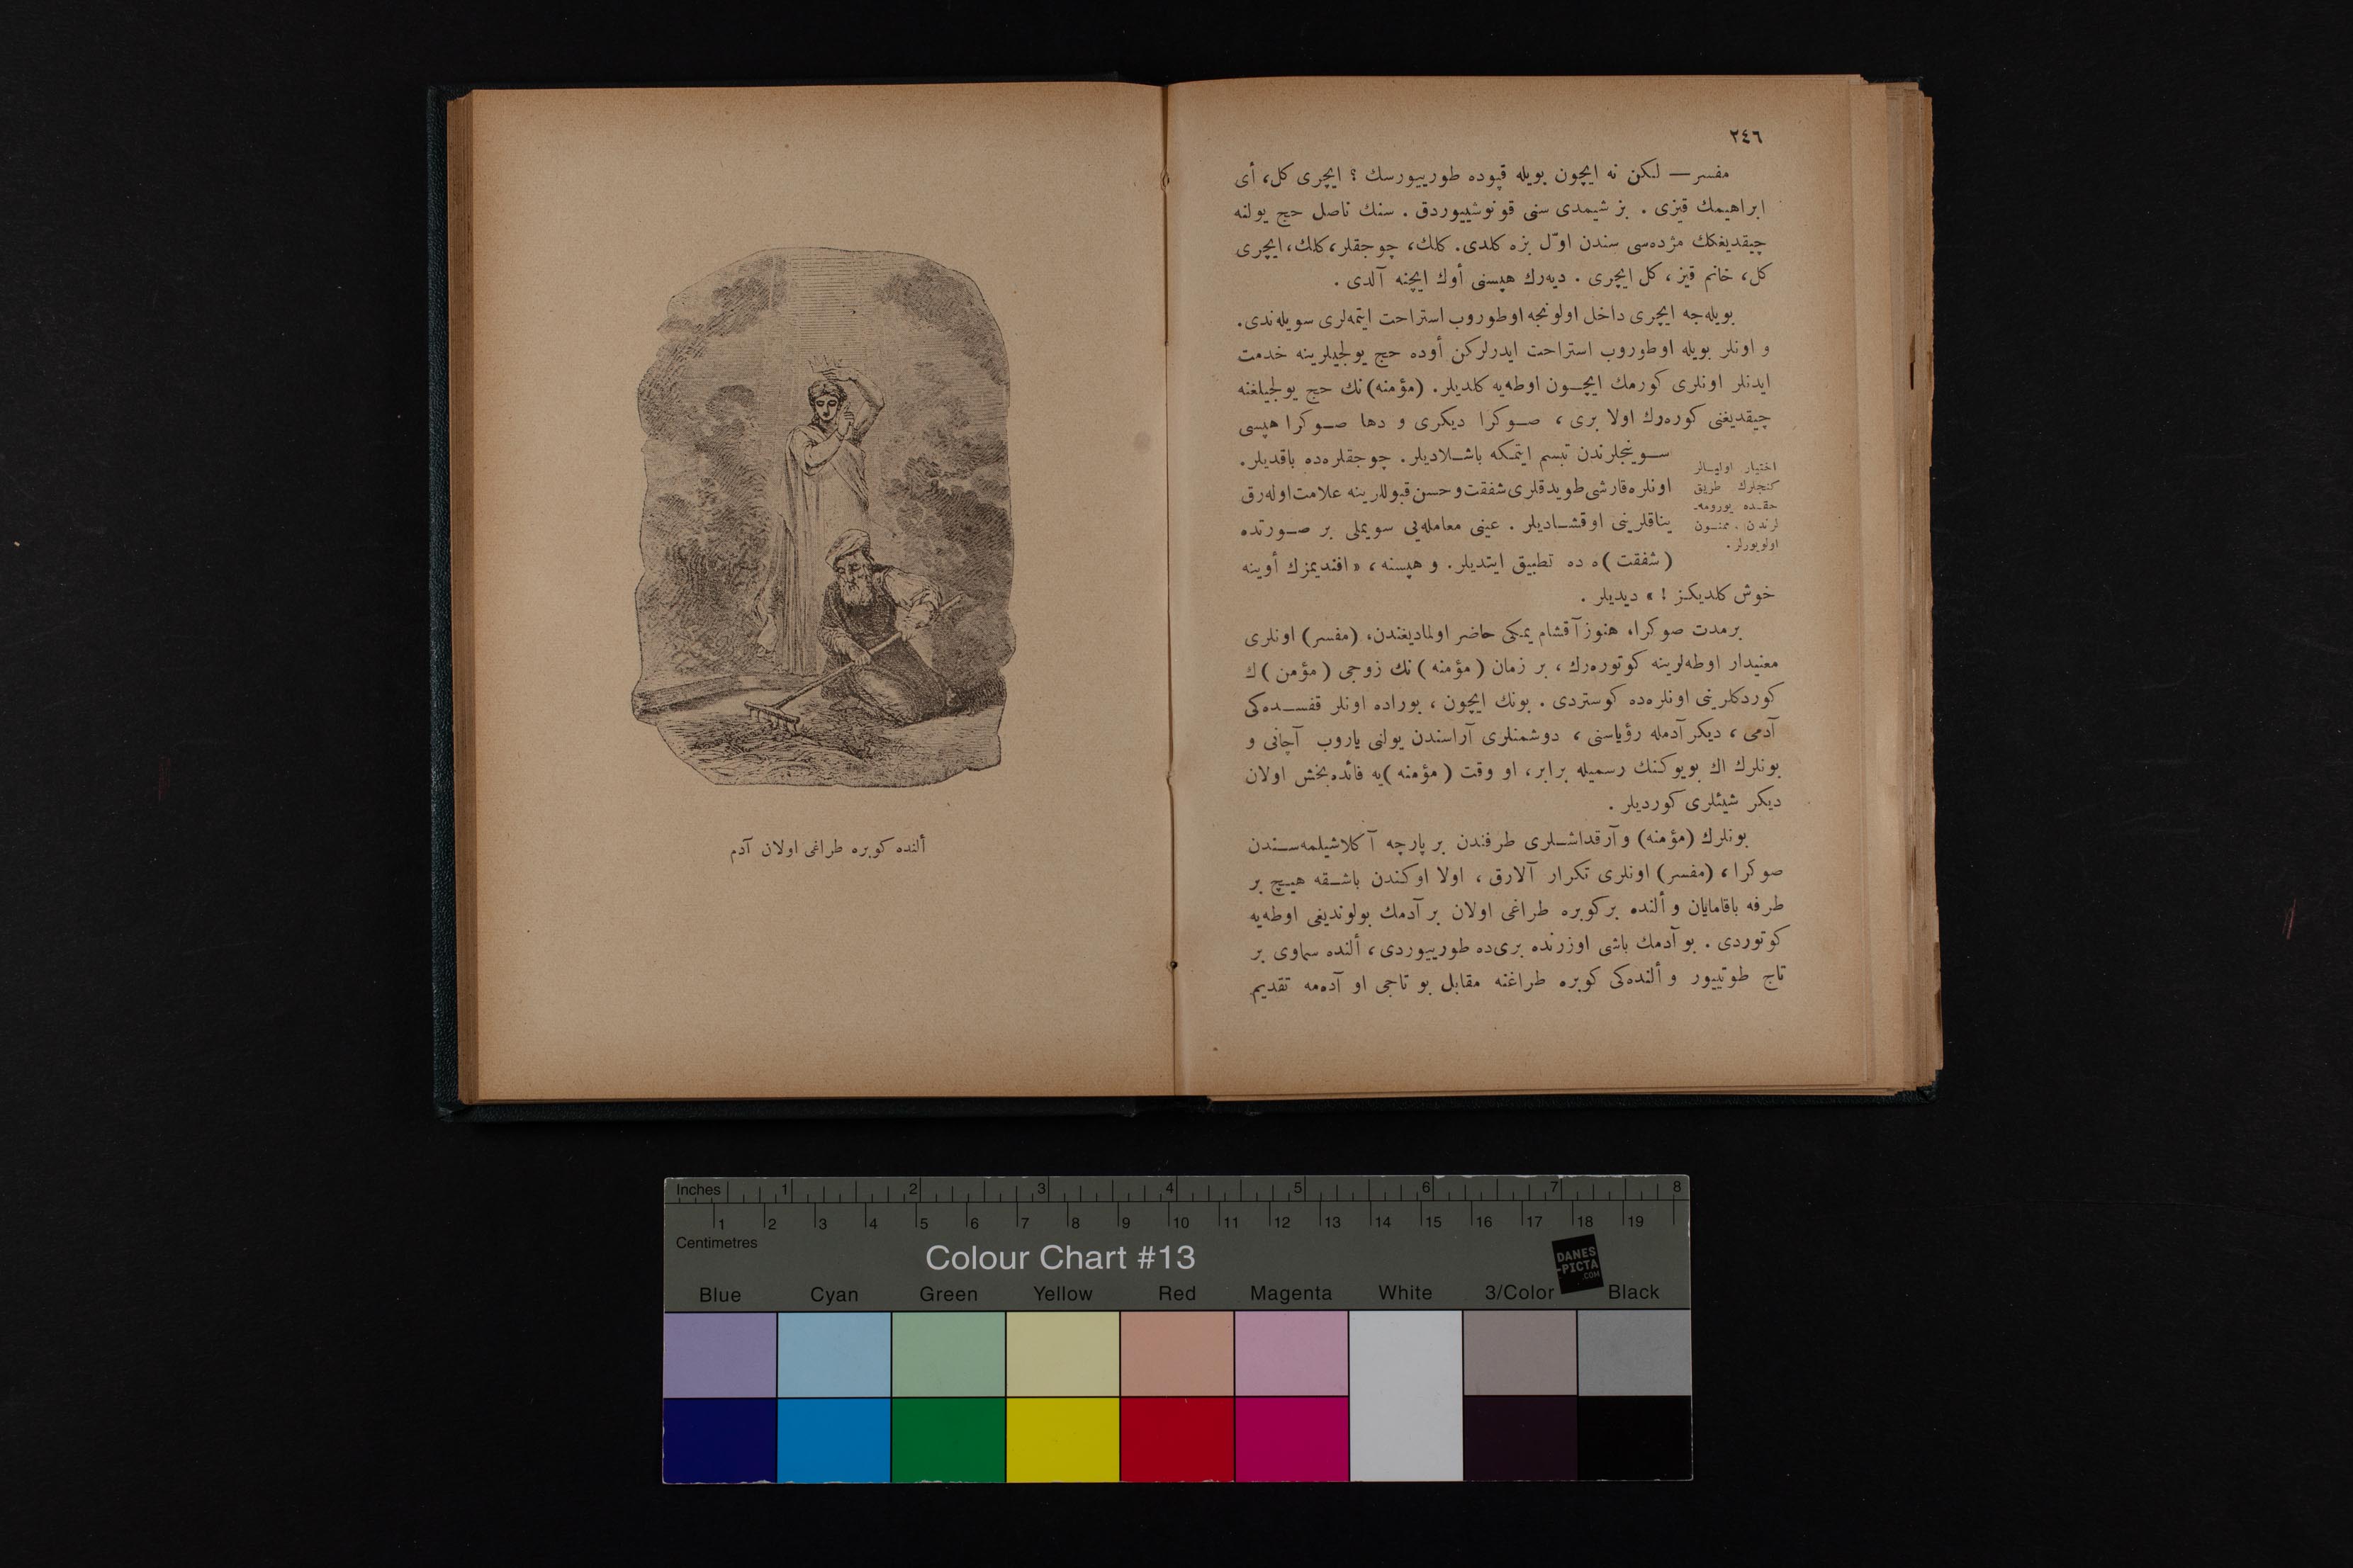 ٢٤٦
مفسر — لكن نه ایچون بویله قپوده طورییورسك ؟ ایچری كل، أی
ابراهیمك قیزی . بز شیمدی سنی قونوشییوردق . سنك ناصل حج یولنه
چیقدیغكك مژده‌سی سندن اوّل بزه كلدی. كلك، چوجقلر، كلك، ایچری
كل، خانم قیز، كل ایچری . دیه‌رك هپسنی أوك ایچنه آلدی .
بویله‌جه ایچری داخل اولونجه اوطوروب استراحت ایتمه‌لری سویله‌ندی.
و اونلر بویله اوطوروب استراحت ایدرلركن أوده حج یولجیلرینه خدمت
ایدنلر اونلری كورمك ایچون اوطه‌یه كلدیلر. (مؤمنه) نك حج یولجیلغنه
چیقدیغنی كوره‌رك اولا بری ، صوكرا دیكری و دها صوكرا هپسی
سوینجلرندن تبسم ایتمكه باشلادیلر. چوجقلره‌ده باقدیلر.
اونلره قارشی طویدقلری شفقت و حسن قبوللرینه علامت اوله‌رق
یناقلرینی اوقشادیلر . عینی معامله‌یی سویملی بر صورتده
( شفقت ) ه ده تطبیق ایتدیلر. و هپسنه ، « افندیمزك أوینه
خوش كلدیكز ! » دیدیلر .
اختیار اولیالر
كنجلرك طریق
حقده یورومه‌-
لرندن . ممنون
اولویورلر .
برمدت صوكرا، هنوز آقشام یمكی حاضر اولمادیغندن، (مفسر) اونلری
معنیدار اوطه‌لرینه كوتوره‌رك ، بر زمان ( مؤمنه ) نك زوجی ( مؤمن ) ك
كوردكلرینی اونلره‌ده كوستردی . بونك ایچون ، بوراده اونلر قفسده‌كی
آدمی ، دیكر آدمله رؤیاسنی ، دوشمنلری آراسندن یولنی یاروب آچانی و
بونلرك اك بویوكنك رسمیله برابر، او وقت ( مؤمنه ) یه فائده‌بخش اولان
دیكر شیئلری كوردیلر .
بونلرك (مؤمنه) و آرقداشلری طرفندن بر پارچه آكلاشیلمه‌سندن
صوكرا ، (مفسر) اونلری تكرار آلارق ، اولا اوكندن باشقه هیچ بر
طرفه باقامایان و ألنده بر كوبره طراغی اولان بر آدمك بولوندیغی اوطه‌یه
كوتوردی . بو آدمك باشی اوزرنده بری‌ده طورییوردی ، ألنده سماوی بر
تاج طوتییور و ألنده‌كی كوبره طراغنه مقابل بو تاجی او آده‌مه تقدیم
ألنده كوبره طراغی اولان آدم
Inches 1 2 3 4 5 6 7 8
1 2 3 4 5 6 7 8 9 10 11 12 13 14 15 16 17 18 19
Centimetres
Colour Chart #13
DANES
-PICTA
.COM
Blue Cyan Green Yellow Red Magenta White 3/Color Black